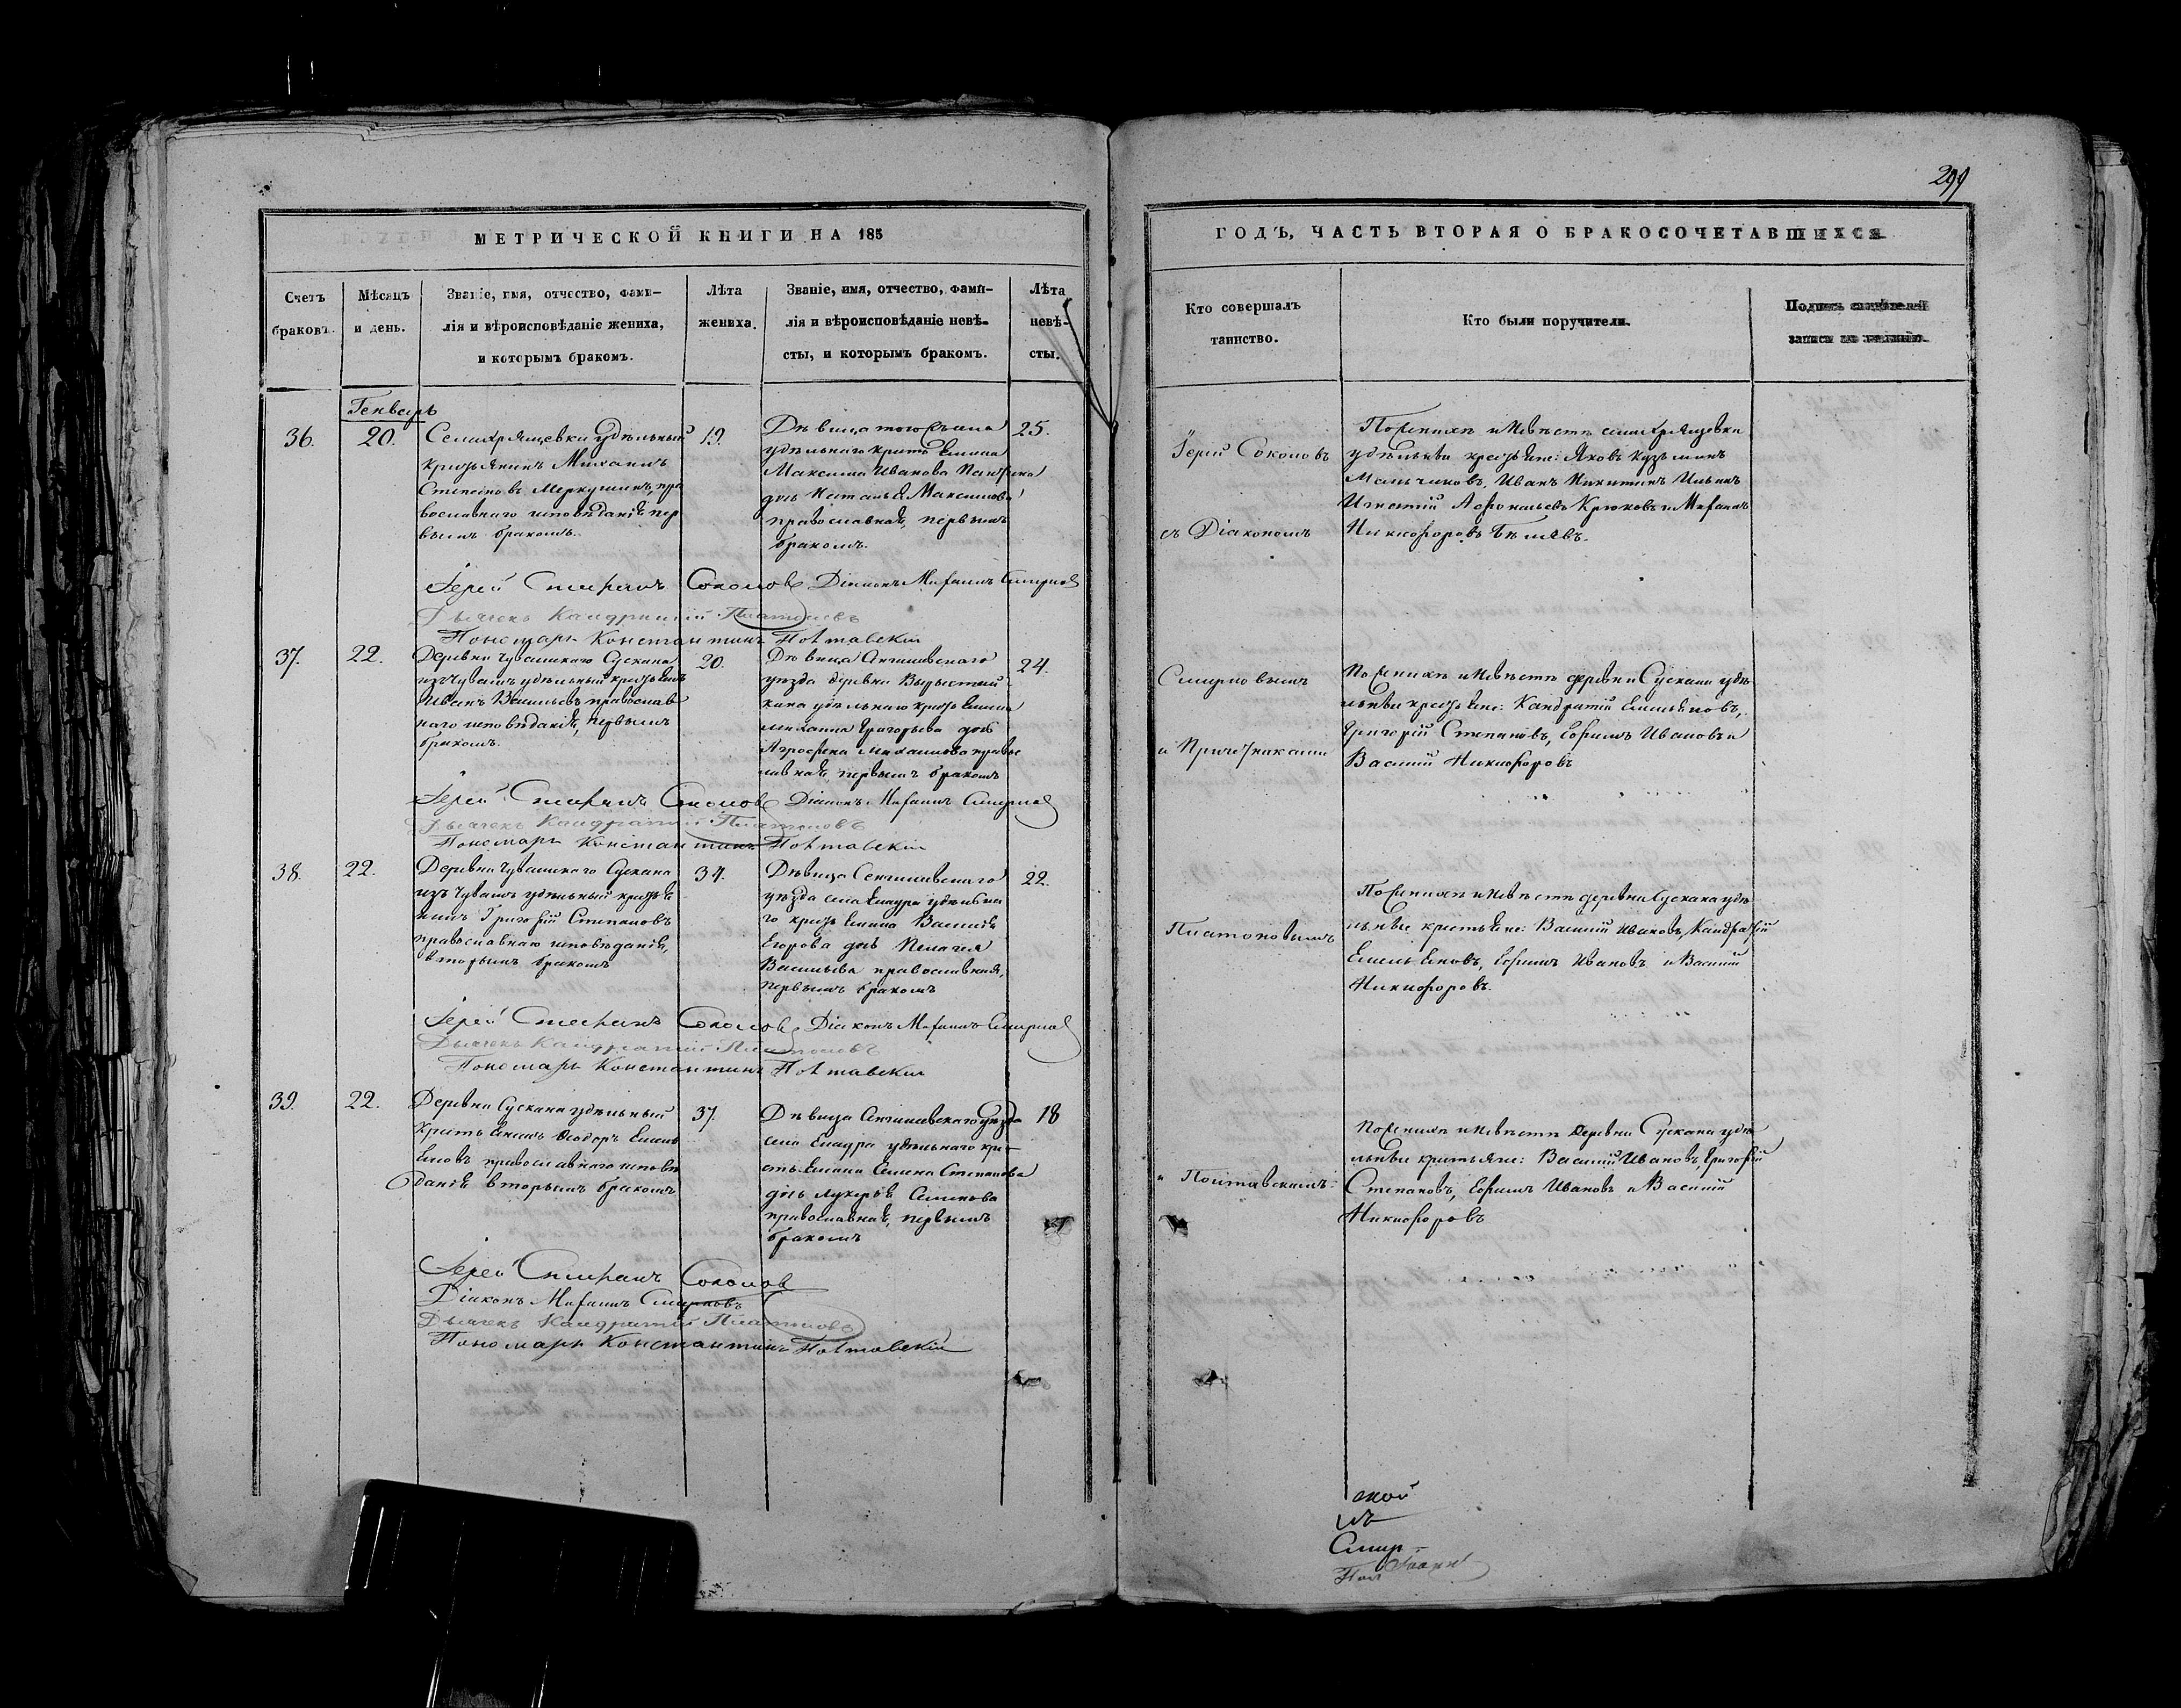 299
МЕТРИЧЕСКОЙ КНИГИ НА 185
ГОДЪ, ЧАСТЬ ВТОРАЯ О БРАКОСОЧЕТАВШИХСЯ
Счетъ
браковъ.
Мѣсяцъ
и день.
Званіе, имя, отчество, фами-
лія и вѣроисповѣданіе жениха,
и которымъ бракомъ.
Лѣта
жениха.
Званіе, имя, отчество, фами-
лія и вѣроисповѣданіе невѣ-
сты, и которымъ бракомъ.
Лѣта
невѣ-
сты.
Кто совершалъ
таинство.
Кто были поручители.
Подпись свидѣтелей
записи по желанію.
Генварь
36.
20.
Села Хрящевки удѣльный
крестьянинъ Михаилъ
Степановъ Меркушинъ, пра
вославнаго исповѣданія пер
вымъ бракомъ.
19.
Дѣвица того села
удѣльнаго крестьянина
Максима Иванова
дочь Наталья Максимова
православная, первымъ
бракомъ.
25.
Іерей Соколовъ
съ Діакономъ
По женихѣ и невѣстѣ села Хрящевки
удѣльные крестьяне: Яковъ Кузьминъ
Мельниковъ, Иванъ Никитинъ Ильинъ
Игнатій Афонасьевъ Крюковъ и Михаилъ
Никифоровъ Бѣляевъ.
Іерей Стефанъ Соколовъ Діаконъ Михаилъ Смирновъ
Дьячекъ Кандратій Платоновъ
Пономарь Константинъ Полтавскій
37.
22.
Деревни Чувашскаго Сускана
изъ Чувашъ удѣльный крестьянинъ
Иванъ Васильевъ православ
наго исповѣданія, первымъ
бракомъ.
20.
Дѣвица Сенгилевскаго
уѣзда деревни
кина удѣльнаго крестьянина
Михаила Григорьева дочь
Агрофена Михайлова православ
лавная, первымъ бракомъ
24.
Смирновымъ
и Причетниками
По женихѣ и невѣстѣ деревни Сускана удѣ
льные крестьяне: Кандратій Емельяновъ,
Григорій Степановъ, Ефимъ Ивановъ и
Василій Никифоровъ
Іерей Стефанъ Соколовъ Діаконъ Михаилъ Смирновъ
Дьячекъ Кандратій Платоновъ
Пономарь Константинъ Полтавскій
38.
22.
Деревни Чувашскаго Сускана
изъ Чувашъ удѣльный крестья
нинъ Григорій Степановъ
православнаго исповѣданія,
вторымъ бракомъ
34.
Дѣвица Сенгилевскаго
уѣзда села Елаура удѣльна
го крестьянина Василія
Егорова дочь Пелагея
Васильева православная,
первымъ бракомъ
22.
Платоновымъ
По женихѣ и невѣстѣ деревни Сускана удѣ
льные крестьяне: Василій Ивановъ, Кандратій
Емельяновъ, Ефимъ Ивановъ и Василій
Никифоровъ.
Іерей Стефанъ Соколовъ Діаконъ Михаилъ Смирновъ
Дьячекъ Кандратій Платоновъ
Пономарь Константинъ Полтавскій
39.
22.
Деревни Сускана удѣльный
крестьянинъ Ѳеодоръ Емель
яновъ православнаго исповѣ
данія вторымъ бракомъ
37.
Дѣвица Сенгилевскаго уѣзда
села Елаура удѣльнаго кре-
стьянина Семена Степанова
дочь Лукерья Семенова
православная, первымъ
бракомъ
18
и Полтавскимъ
По женихѣ и невѣстѣ деревни Сускана удѣ
льные крестьяне: Василій Ивановъ, Григорій
Степановъ, Ефимъ Ивановъ и Василій
Никифоровъ
Іерей Стефанъ Соколовъ
Діаконъ Михаилъ Смирновъ
Дьячекъ Кандратій Платоновъ
Пономарь Константинъ Полтавскій
ской
Смир-